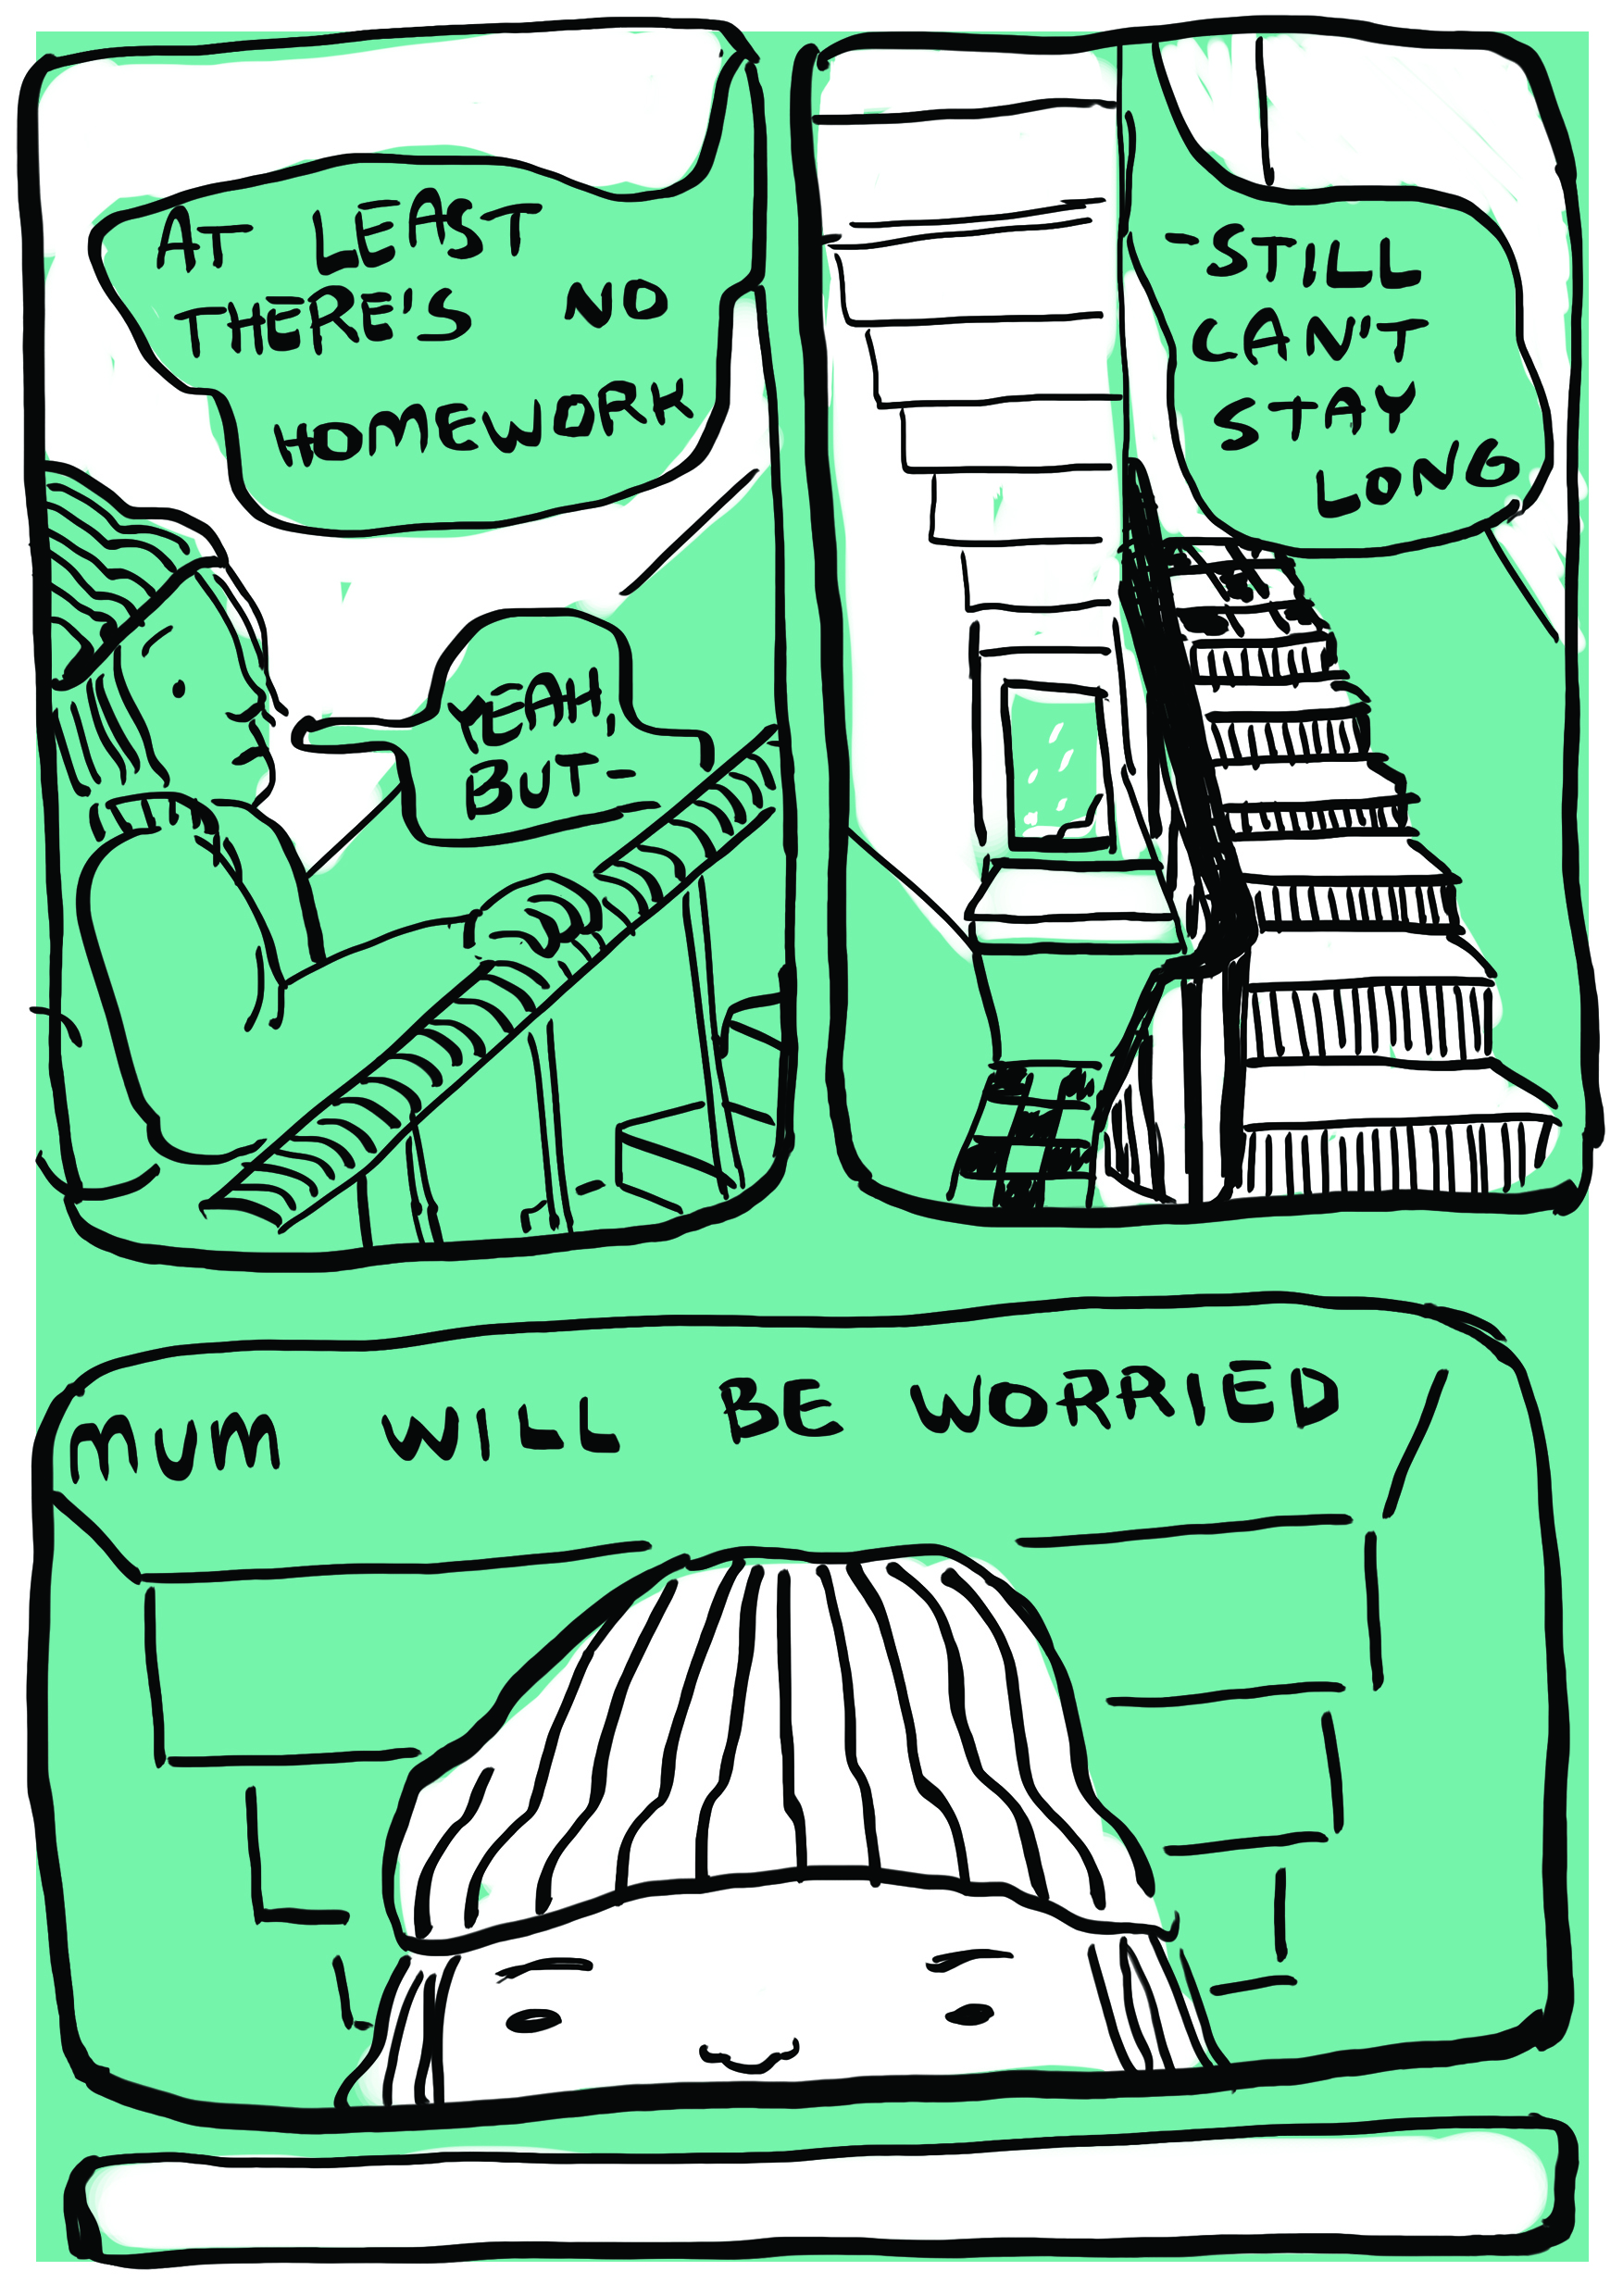 AT LEAST
THERE'S NO
HOMEWORK
YEAH,
BUT-
-STILL
CAN'T
STAY
LONG
MUM WILL BE WORRIED